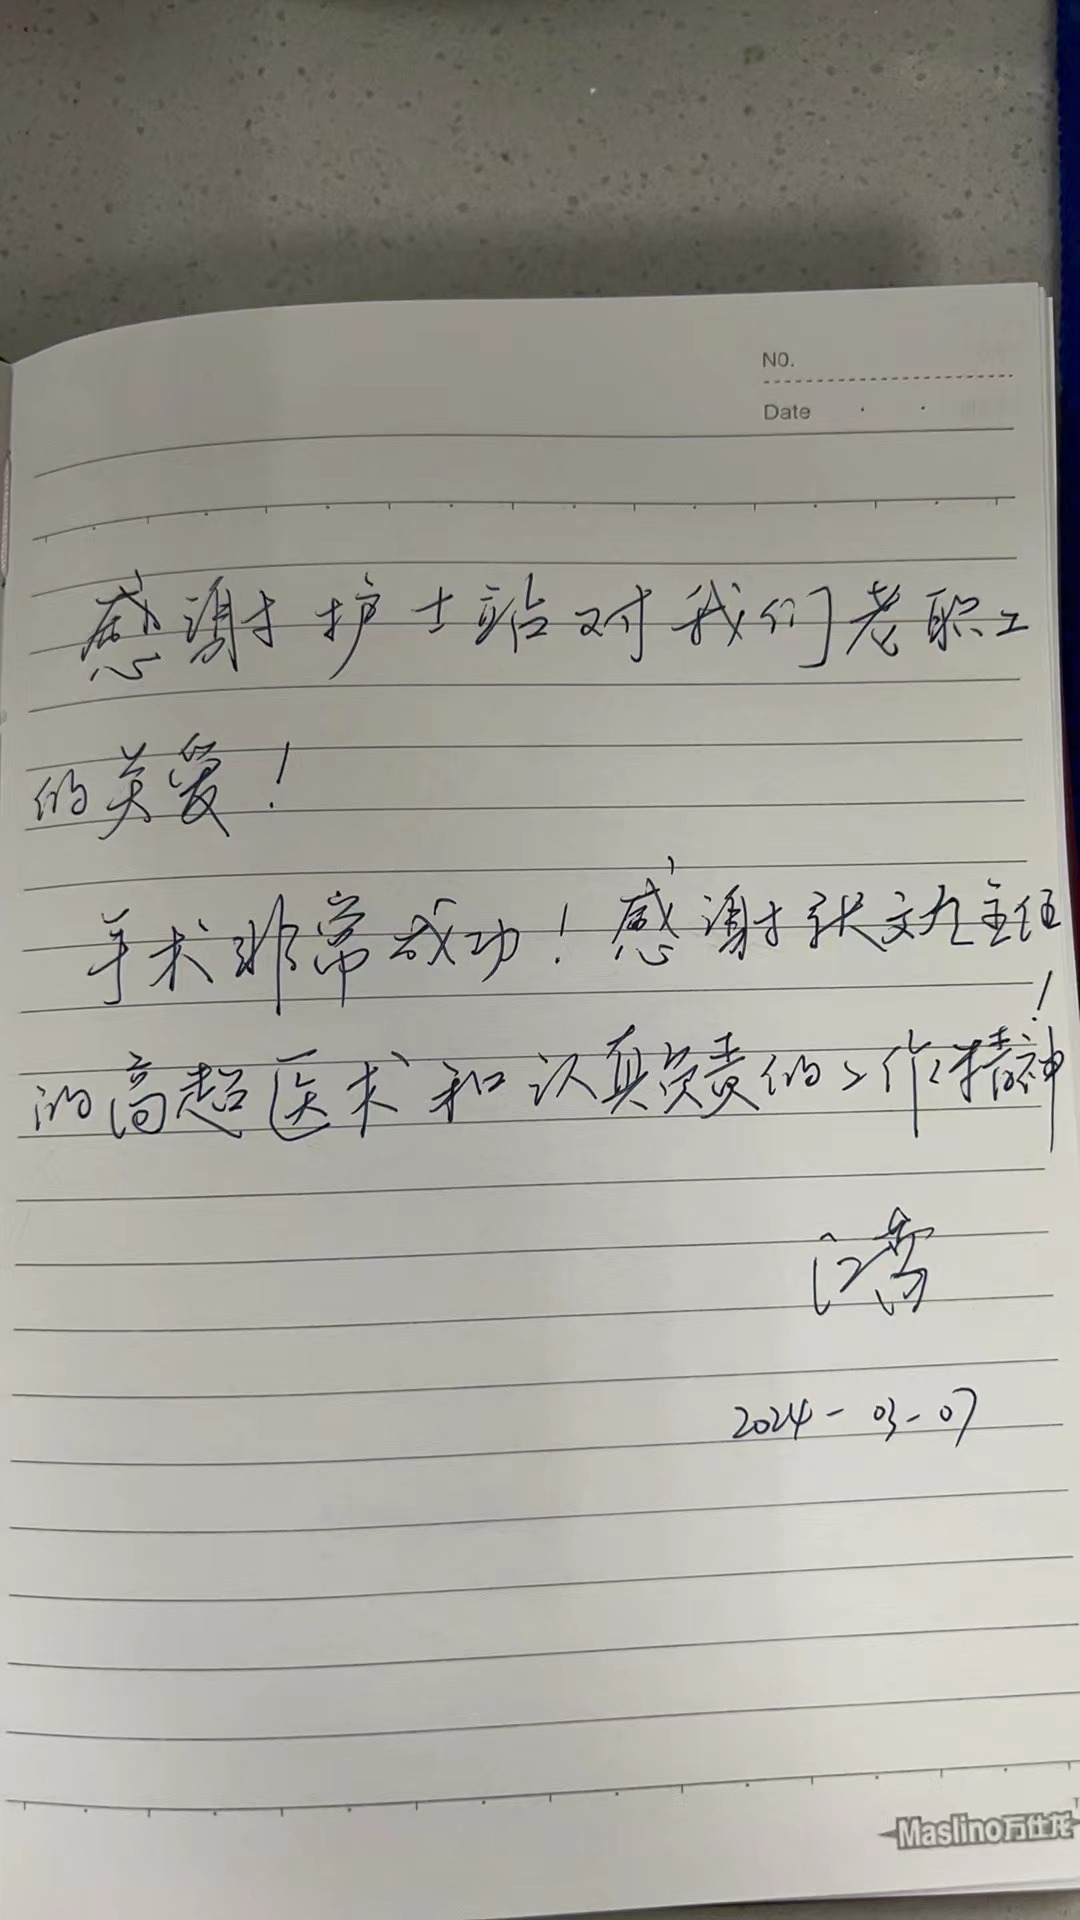 NO.
Date
感谢护士站对我们老职工
的关爱!
手术非常成功!感谢张文主任
的高超医术和认真负责的工作精神!
江
2024-03-07
Maslino万仕龙